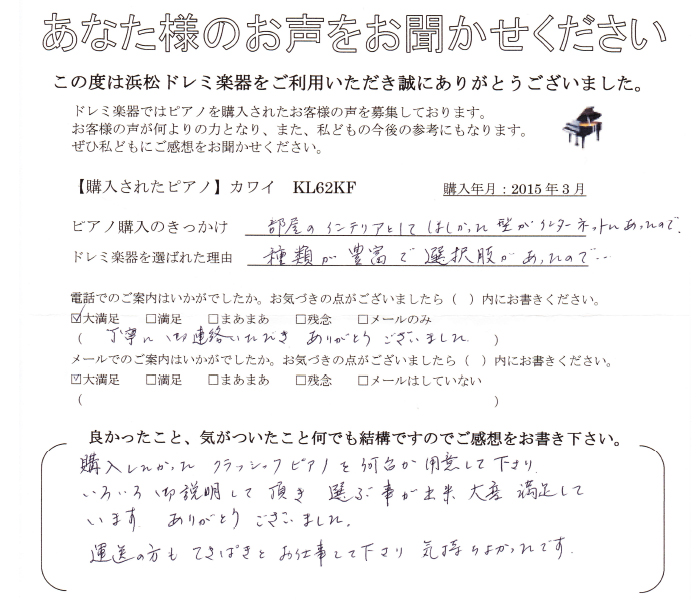 あなた様のお声をお聞かせください
この度は浜松ドレミ楽器をご利用いただき誠にありがとうございました。
ドレミ楽器ではピアノを購入されたお客様の声を募集しております。
お客様の声が何よりの力となり、また、私どもの今後の参考にもなります。
ぜひ私どもにご感想をお聞かせください。
【購入されたピアノ】カワイ KL62KF 購入年月：2015年3月
ピアノ購入のきっかけ 部屋のインテリアとしてほしかった型がインターネットにあったので。
ドレミ楽器を選ばれた理由 種類が豊富で選択肢があったので…
電話でのご案内はいかがでしたか。お気づきの点がございましたら（ ）内にお書きください。
☑大満足 □満足 □まあまあ □残念 □メールのみ
（ 丁寧に御連絡いただき ありがとうございました。 ）
メールでのご案内はいかがでしたか。お気づきの点がございましたら（ ）内にお書きください。
☑大満足 □満足 □まあまあ □残念 □メールはしていない
（ ）
良かったこと、気がついたこと何でも結構ですのでご感想をお書き下さい。
購入したかった クラシックピアノを何台か用意して下さり
いろいろ御説明して頂き 選ぶ事が出来 大変満足して
います ありがとうございました。
運送の方もてきぱきとお仕事して下さり 気持ちよかったです。